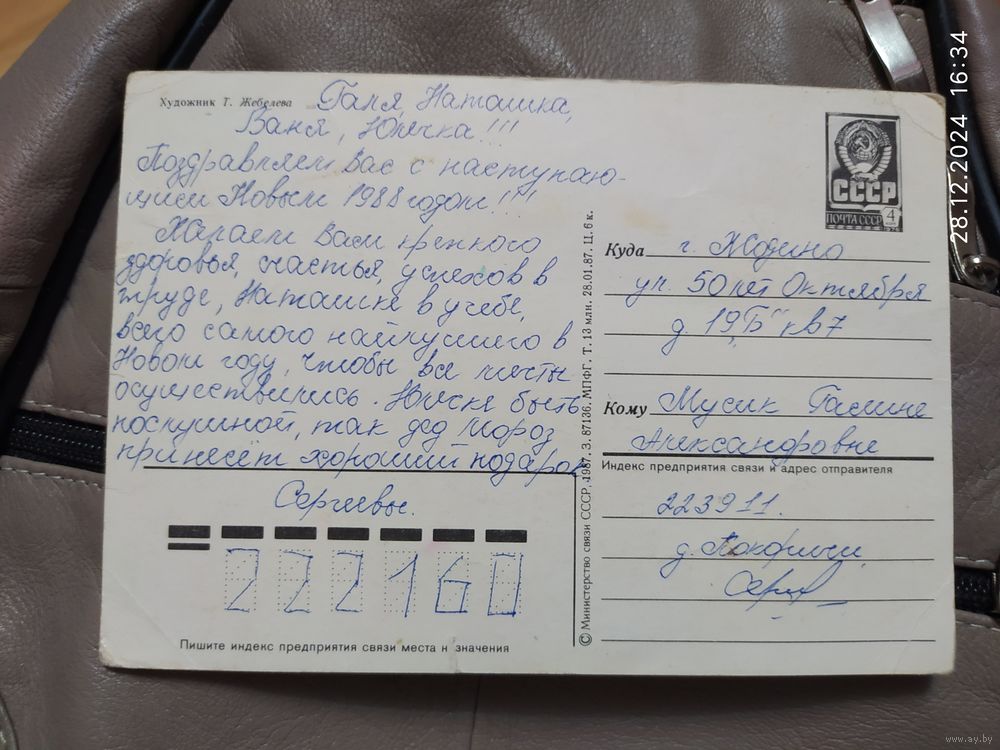 Художник Т. Жебелева
Галя, Наташка,
Ваня, Юлечка!!!
Поздравляем Вас с наступаю-
щим Новым 1988 годом!!!
Желаем Вам крепкого
здоровья, счастья, успехов в
труде, Наташке в учебе,
всего самого наилучшего в
Новом году, чтобы все мечты
осуществились. Юлечке быть
послушной, так дед Мороз
принесёт хороший подарок
Сергеевы.
222160
Пишите индекс предприятия связи места н значения
© Министерство связи СССР. 1987. З. 87136. МПФГ. Т. 13 млн. 28.01.87. Ц. 6 к.
СССР
ПОЧТА СССР 4
Куда г. Жодино
ул. 50 лет Октября
д. 19 „Б" кв 7
Кому Мусик Галине
Александровне
Индекс предприятия связи и адрес отправителя
223911.
28.12.2024 16:34
www.ay.by